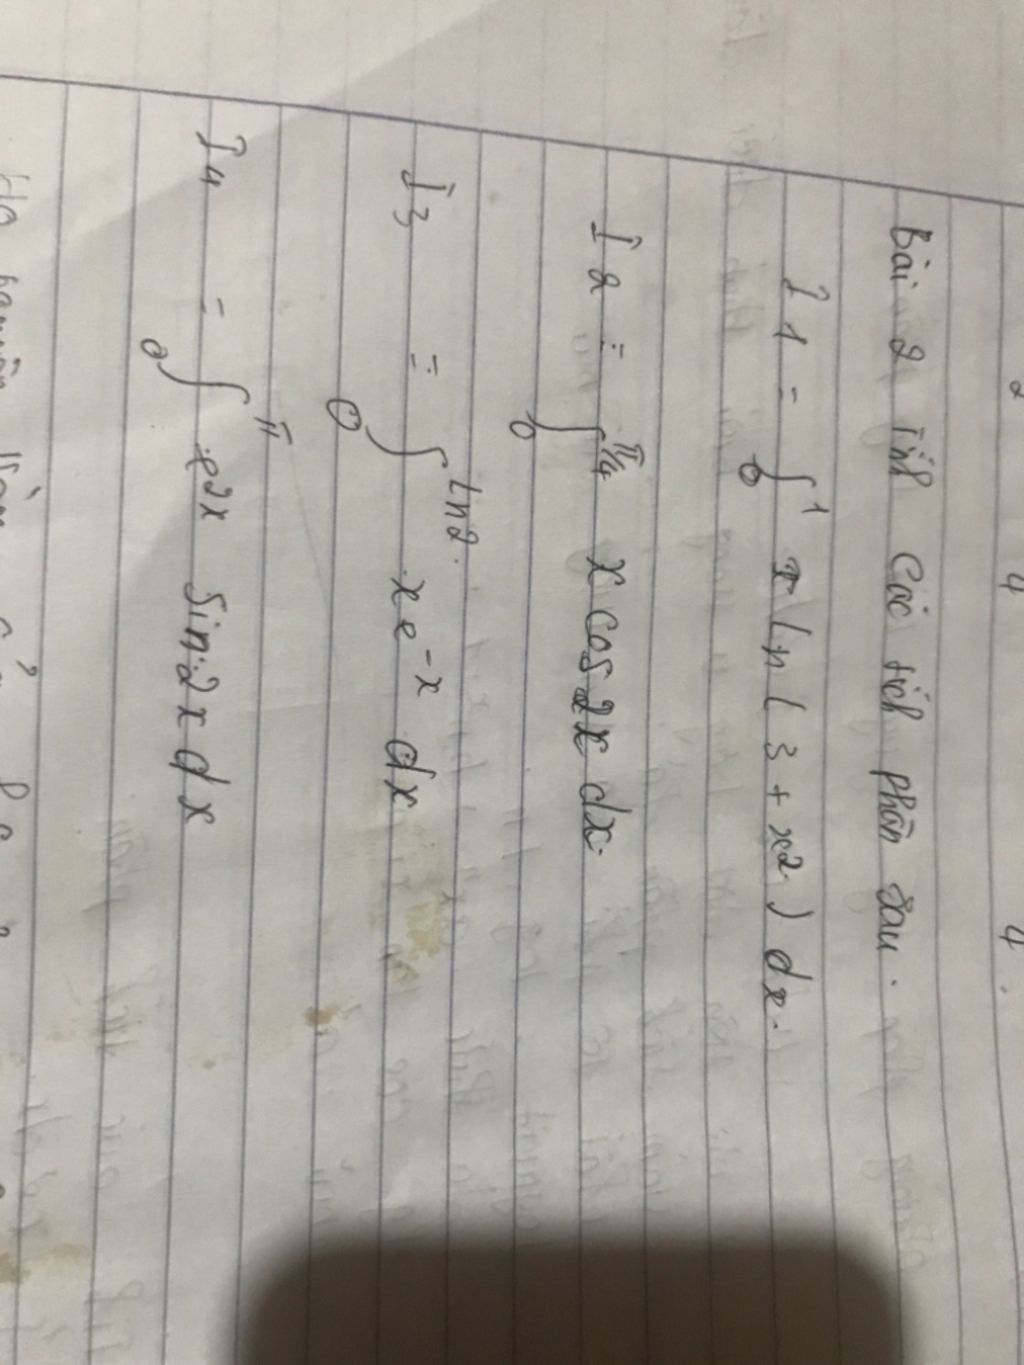 2 4 4
Bài 2 Tính các tích phân sau.
I1 = ∫₀¹ x ln(3 + x²) dx.
I2 = ∫₀^π/4 x cos 2x dx.
I3 = ∫₀^ln2 xe⁻ˣ dx
I4 = ∫₀^π e2x sin2x dx